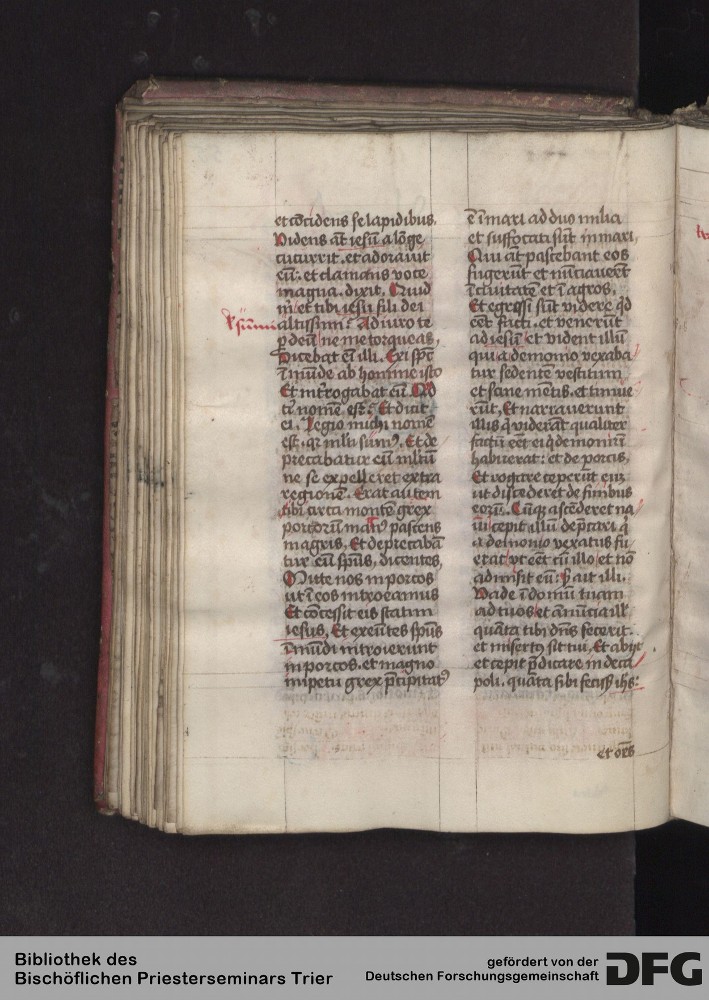 et cōcidens se lapidibus.
Videns aūt iesū a lōge
cucurrit. et adorauit
eū. et clamans voce
magna. dixit. Quid
m̄ et tibi iesu fili dei
altissimi? Adiuro te
ꝑ deū ne me torqueas,
Dicebat eī illi. Exi spūs
īmūde ab homine isto
Et int̄rogabat eū. Qd̄
t̄ nomē est? Et dicit
ei. Legio michi nomē
est. qꝛ ml̄ti sumꝰ. Et de
precabatur eū ml̄tū
ne se expelleret extra
regionē. Erat autem
ibi circa montē grex
porcorū magꝰ pascens
in agris, Et deprecabā
tur eū sp̄us, dicentes,
Mitte nos in porcos
ut ī eos introeamus
Et cōcessit eis statim
iesus, Et exeūtes sp̄us
īmūdi introierunt
in porcos. et magno
impetu grex p̄cipitatꝰ
ē ī mari ad duo milia
et suffocati sūt in mari,
Qui aūt pascebant eos
fugerūt et nūciauerūt
ī ciuitatē et ī agros,
Et egressi sūt videre qd̄
eēt facti. et venerūt
ad iesū et vident illū
qui a demonio vexaba
tur sedentē vestitum
et sane mētis. et timue
rūt, Et narrauerunt
illis q̄ viderāt qualiter
factū eēt ei q̄ demoniū
habuerat: et de porcis,
Et rogare ceperūt eū
ut discederet de finibus
eorū. Cūqꝫ ascēderet na
uī cepit illū dep̄cari q̄
a demonio vexatus fu
erat vt eēt cū illo et nō
admisit eū: s̄ ait illi.
Vade ī domū tuam
ad tuos et annūcia ill̄
quāta tibi dn̄s fecerit.
et misertꝰ sit tui, Et abijt
et cepit p̄dicare in deca
poli. quāta sibi fecisset ih̄s:
et om̄s
Bibliothek des
Bischöflichen Priesterseminars Trier
gefördert von der
Deutschen Forschungsgemeinschaft
DFG